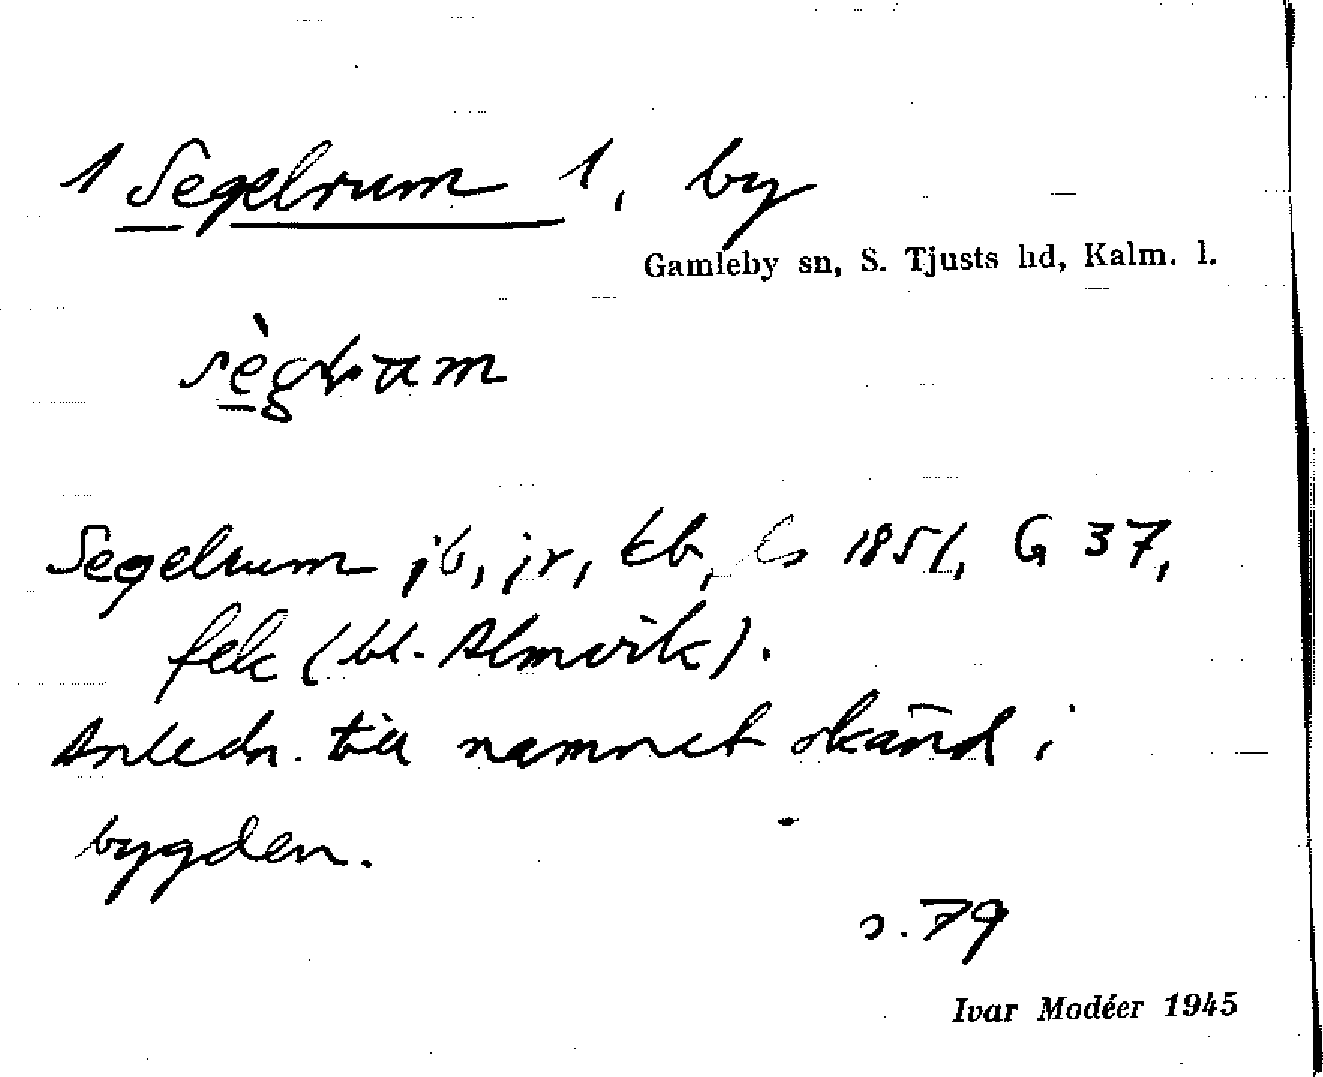 1 Segelrum 1, by
Gamleby sn, S. Tjusts hd, Kalm. l.
Segelrum jb, jr, kb, ls 1851, G 37,
fek (bl. Almvik).
Anledn. till namnet okänd i
bygden.
s. 79
Ivar Modéer 1945